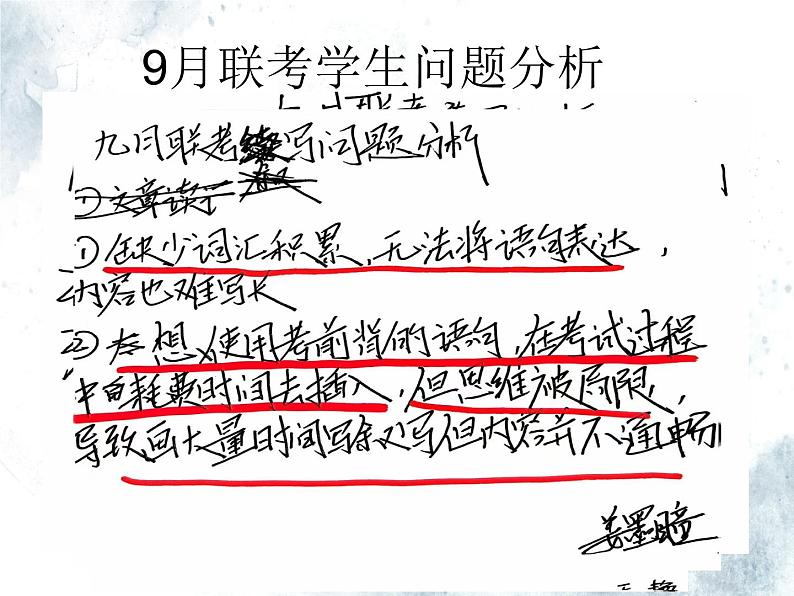 9月联考学生问题分析
九月联考续写问题分析
①文章读了
①缺少词汇积累,无法将语句表达,
内容也难写长
②太想使用考前背的语句,在考试过程
中白耗费时间去插入,但思维被局限,
导致画大量时间写余又写但内容并不通畅
姜墨瞳